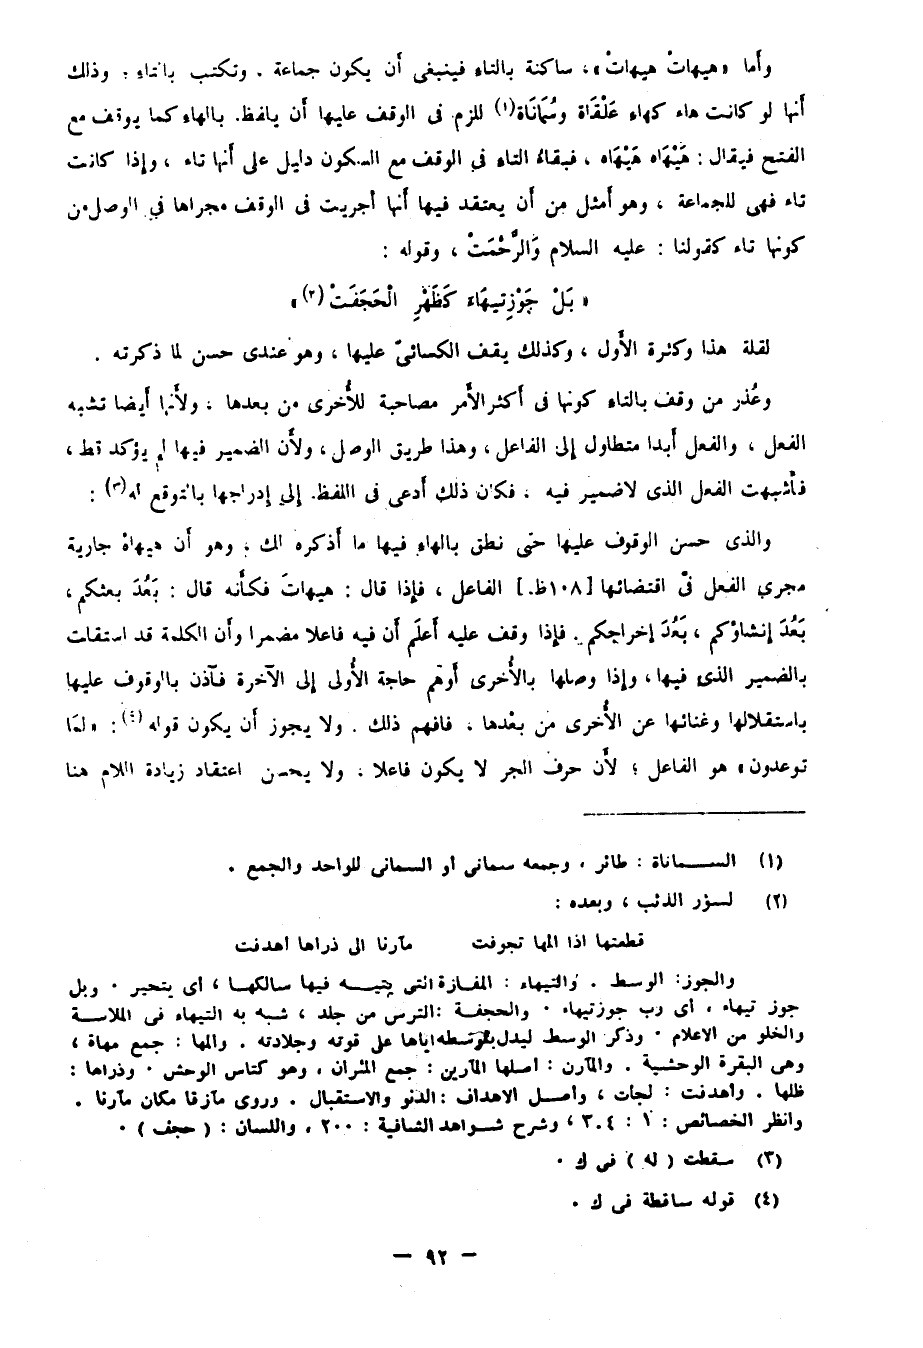 وأما «هيهاتْ هيهاتْ»، ساكنة بالتاء فينبغى أن يكون جماعة . وتكتب بالتاء ؛ وذلك
أنها لو كانت هاء كهاء عَلْقَاة وسُمَانَاة(١) للزم فى الوقف عليها أن يلفظ بالهاء كما يوقف مع
الفتح فيقال : هَيْهَاه هَيْهَاه ، فبقاءُ التاء فى الوقف مع السكون دليل على أنها تاء ، وإذا كانت
تاء فهى للجماعة ، وهو أمثل من أن يعتقد فيها أنها أجريت فى الوقف مجراها فى الوصل من
كونها تاء كقولنا : عليه السلام وَالرَّحْمَتْ ، وقوله :
« بَلْ جَوْزِ تيهَاءَ كَظَهْرِ الْحَجَفَتْ (٢)»
لقلة هذا وكثرة الأَول ، وكذلك يقف الكسائىّ عليها ، وهو عندى حسن لما ذكرته .
وعُذر من وقف بالتاء كونها فى أكثر الأَمر مصاحبة للأُخرى من بعدها ، ولأَنها أيضا تشبه
الفعل ، والفعل أبدا متطاول إلى الفاعل ، وهذا طريق الوصل ، ولأَن الضمير فيها لم يؤكد قط ،
فأَشبهت الفعل الذى لا ضمير فيه ، فكان ذلك أدعى فى اللفظ إلى إدراجها بالتوقع له(٣) :
والذى حسن الوقوف عليها حتى نطق بالهاء فيها ما أذكره لك ، وهو أن هيهاهْ جارية
مجرى الفعل فى اقتضائها [١٠٨ظ] الفاعل ، فإذا قال : هيهاتَ فكأَنه قال : بَعُدَ بعثكم ،
بَعُدَ إنشاؤكم ، بَعُدَ إخراجكم . فإذا وقف عليه أعلَم أن فيه فاعلا مضمرا وأن الكلمة قد استقلت
بالضمير الذى فيها ، وإذا وصلها بالأُخرى أوهَم حاجة الأُولى إلى الآخرة فآذن بالوقوف عليها
باستقلالها وغنائها عن الأُخرى من بعْدها ، فافهم ذلك . ولا يجوز أن يكون قوله(٤) : «لمَا
توعدون» هو الفاعل ؛ لأَن حرف الجر لا يكون فاعلا ، ولا يحسن اعتقاد زيادة اللام هنا
(١) السمـــاناة : طائر ، وجمعه سمانى او السمانى للواحد والجمع .
(٢) لسؤر الذئب ، وبعده :
قطعتها اذا المها تجوفت مآرنا الى ذراها اهدفت
والجوز : الوسط . والتيهاء : المفازة التى يتيـــه فيها سالكهـا ، أى يتحير . وبل
جوز تيهاء ، أى رب جوز تيهاء . والحجفة : الترس من جلد ، شبه به التيهاء فى الملاسـة
والخلو من الاعلام . وذكر الوسط ليدل بتوسطه اياها على قوته وجلادته . والمها : جمع مهاة ،
وهى البقرة الوحشية . والمآرن : اصلها المآرين : جمع المئران ، وهو كناس الوحش . وذراها :
ظلها . واهدفت : لجات ، وأصـل الاهداف : الدنو والاستقبال . وروى مآزقا مكان مآرنا .
وانظر الخصائص : ١ : ٣٠٤ ، وشرح شـواهد الشافية : ٢٠٠ ، واللسان : ( حجف ) .
(٣) سقطت ( له ) فى ك .
(٤) قوله ساقطة فى ك .
— ٩٢ —